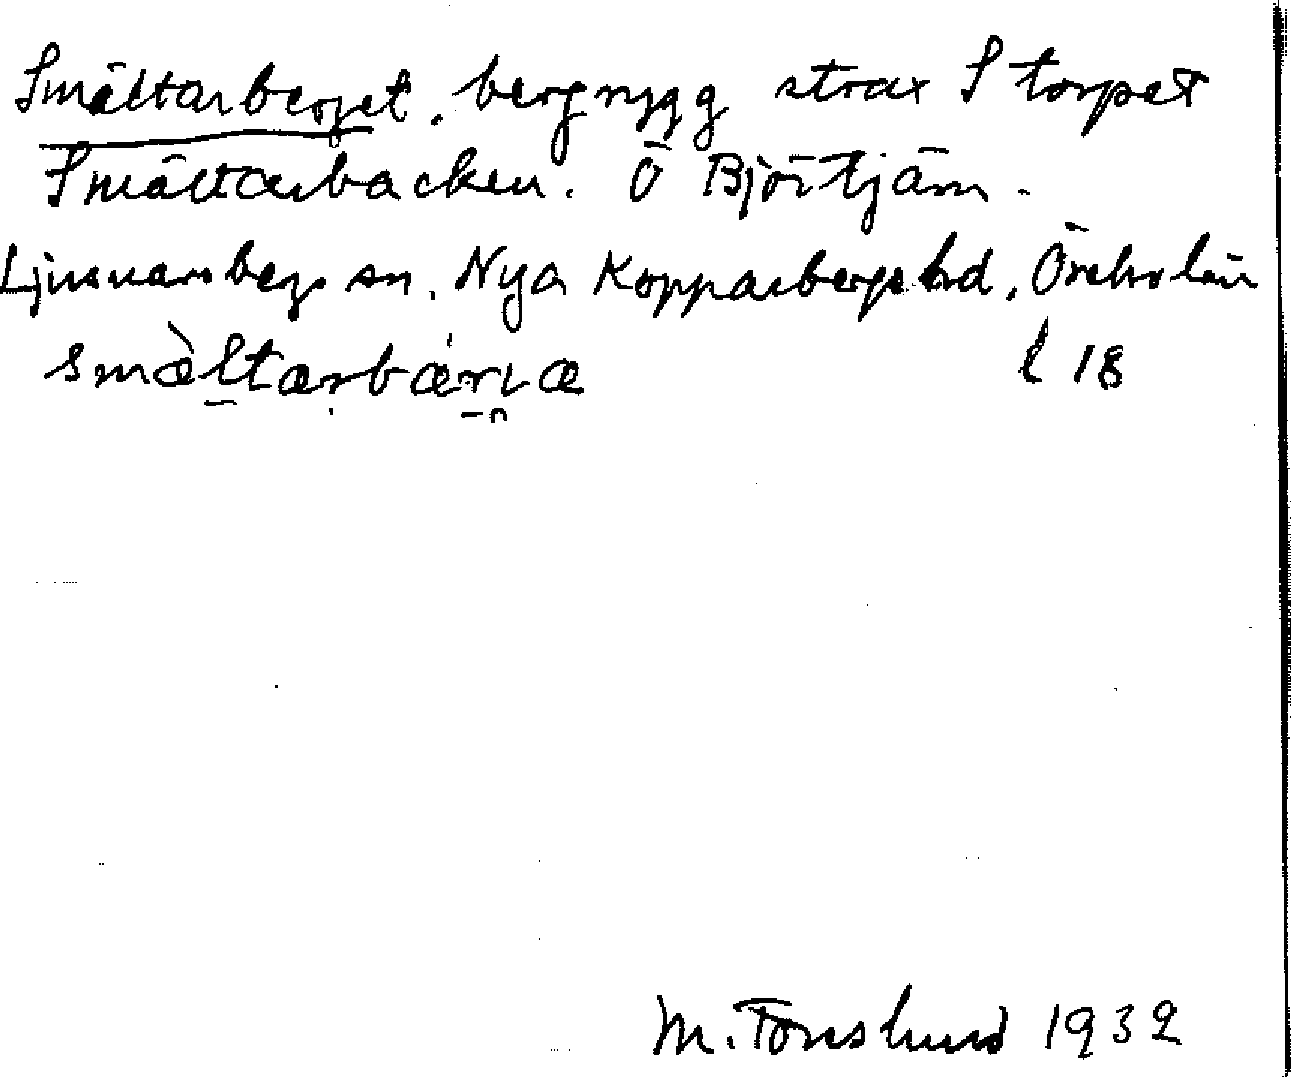 Smältarberget, bergrygg strax S torpet
Smältarbacken. Ö Björtjärn.
Ljusnarsbergs sn, Nya Kopparbergs hd, Örebro län
smæ̀ltarbæ̍rıæ l 18
M. Törnslund 1932